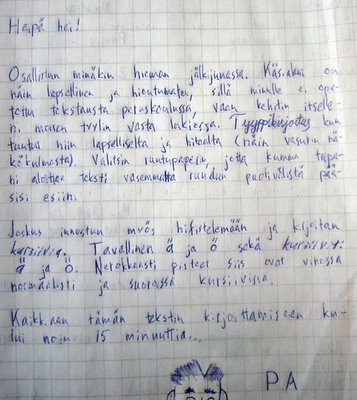 Heipä hei!
Osallistun minäkin hieman jälkijunassa. Käsialani on
näin lapsellinen ja hioutumaton, sillä minulle ei ope-
tettu tekstausta peruskoulussa, vaan kehitin itselle-
ni moisen tyylin vasta lukiossa. Tyyppikirjoitus kun
tuntui niin lapselliselta ja hitaalta (näin vasurin nä-
kökulmasta). Valitsin ruutupaperin, jotta kumma tapa-
ni aloittaa teksti vasemmalta ruudun puolivälistä pää-
sisi esiin.
Joskus innostun myös hifistelemään ja kirjoitan
kursiivia. Tavallinen ä ja ö sekä kursiivi:
ä ja ö. Nerokkaasti pisteet siis ovat vinossa
normaalisti ja suorassa kursiivissa.
Kaikkiaan tämän tekstin kirjoittamiseen ku-
lui noin 15 minuuttia...
PA